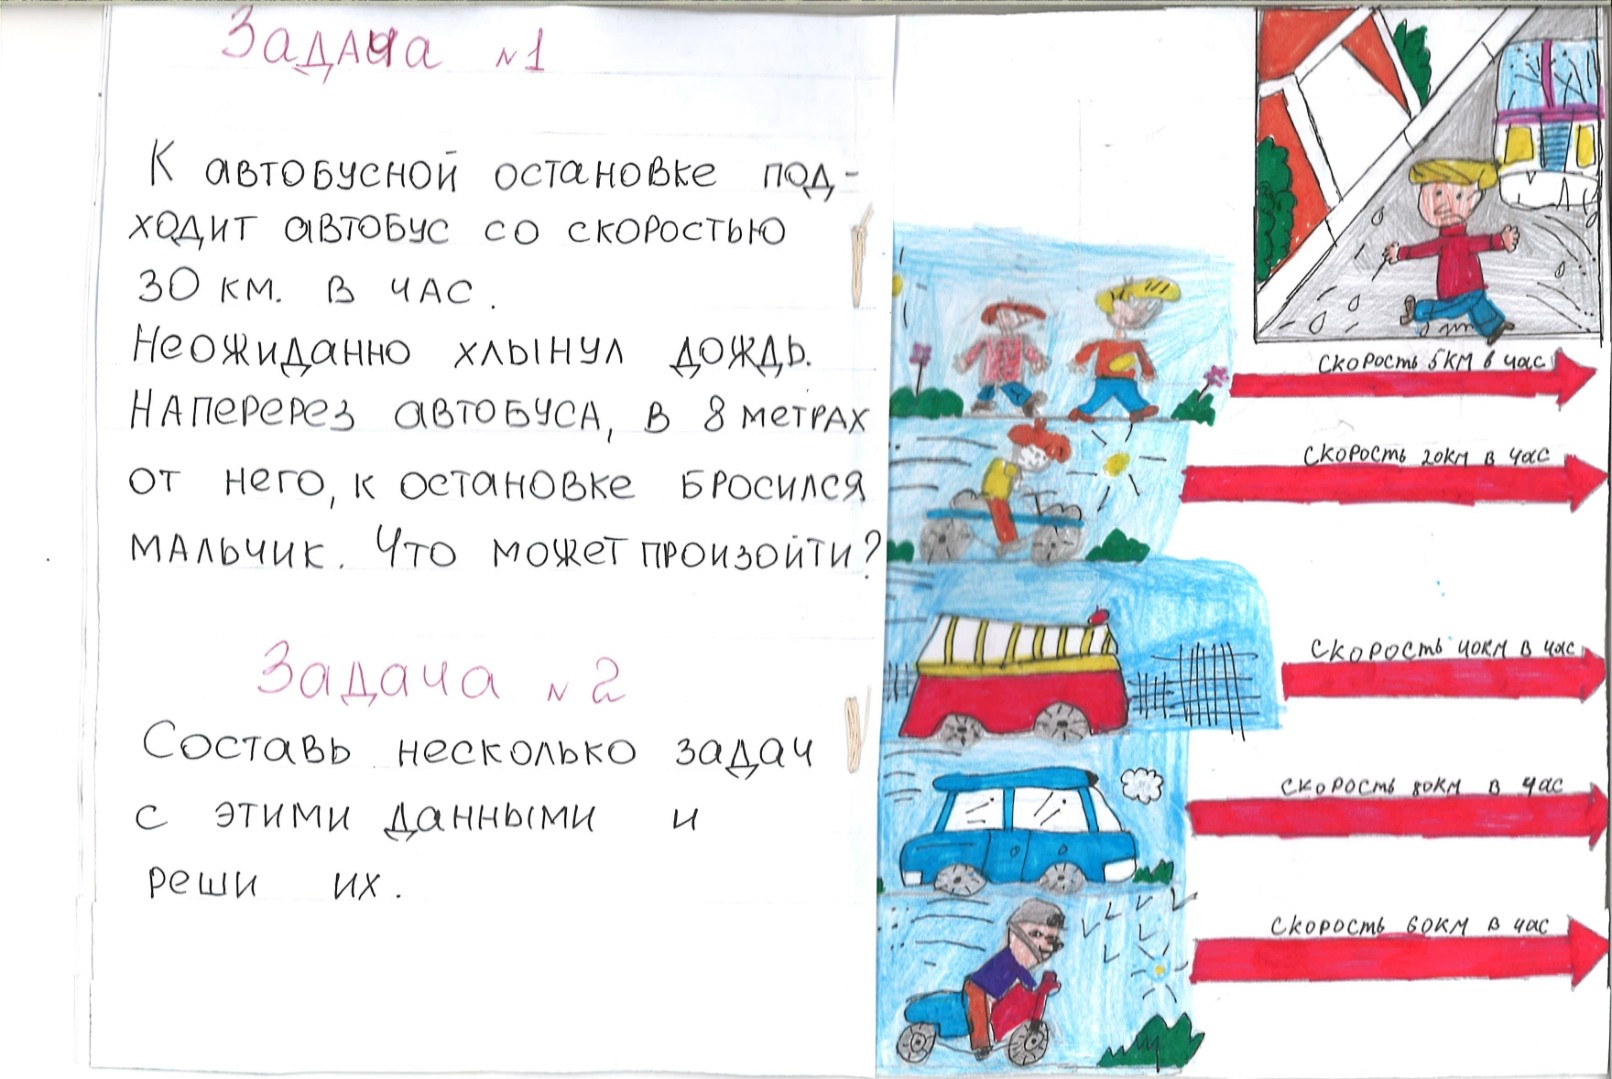 Задача №1
К автобусной остановке под-
ходит автобус со скоростью
30 км. в час.
Неожиданно хлынул дождь.
Наперерез автобуса, в 8 метрах
от него, к остановке бросился
мальчик. Что может произойти?
Задача №2
Составь несколько задач
с этими данными и
реши их.
скорость 5км в час
скорость 20км в час
скорость 40км в час
скорость 80км в час
скорость 60км в час